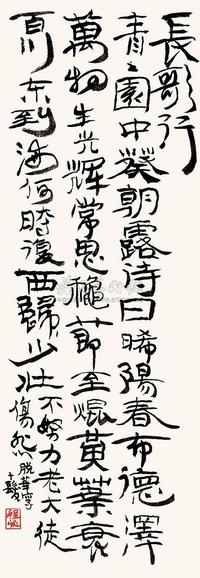 長歌行
青々園中葵朝露待日晞陽春布德澤
萬物生光輝常思穐節至焜黃葉衰
百川東到海何時復西歸少壯不努力老大徒
傷悲